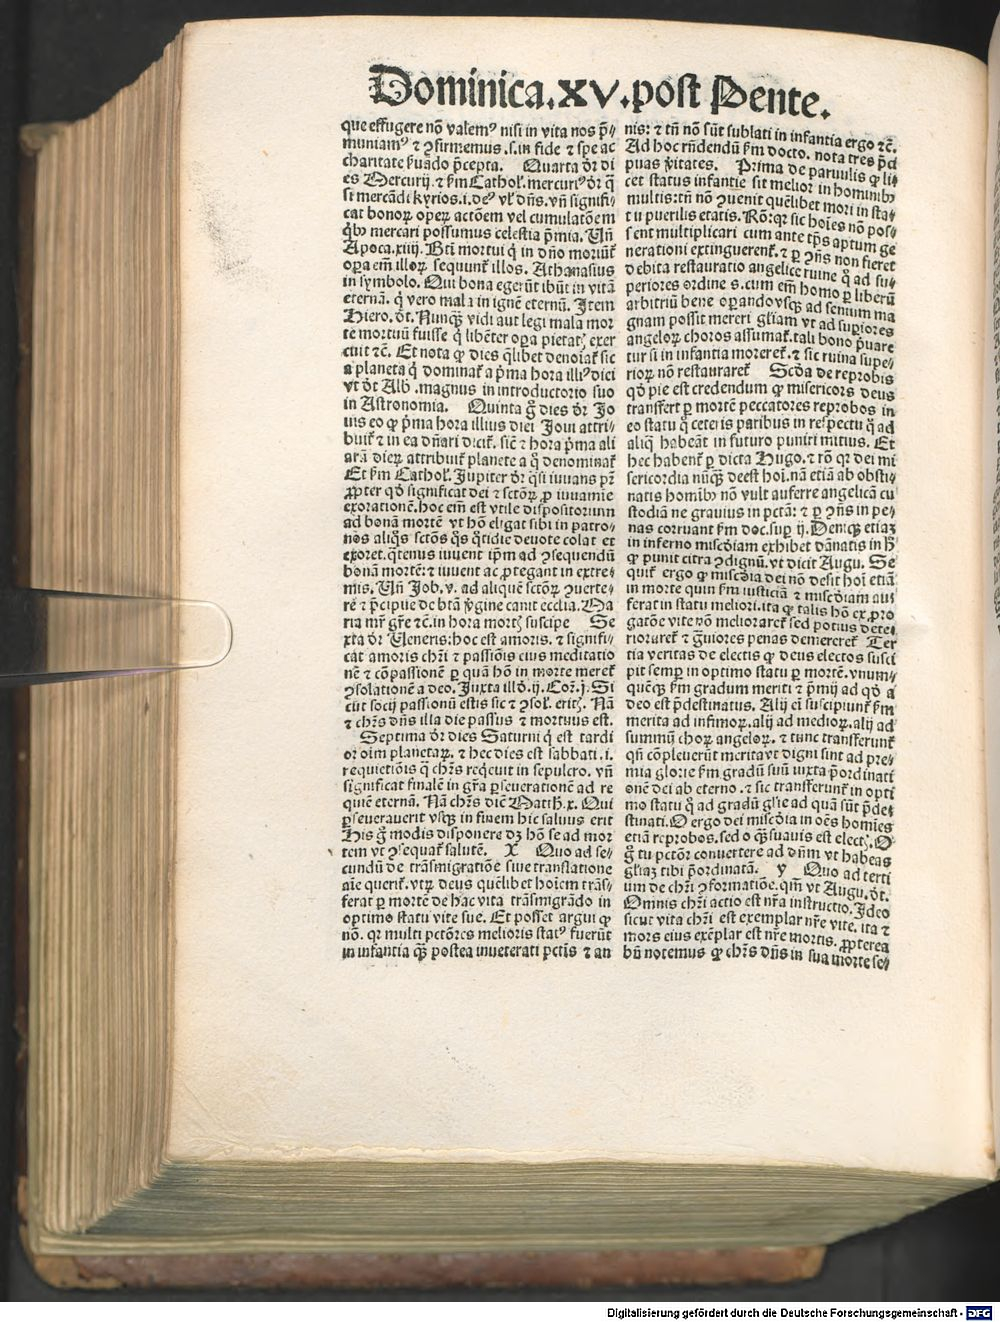 Dominica.XV.post Pente.
que effugere nō valemꝰ nisi in vita nos p̄⸗
muniamꝰ ⁊ ꝯfirmemus .s.in fide ⁊ spe ac
charitate ẜuādo p̄cepta. Quarta d̄r di
es Mercurij. ⁊ ẜm Cathol̕. mercuriꝰ d̄r q̄
si mercādi kyrios.i.deꝰ vl̕ dn̄s. vn̄ signifi⸗
cat bonoꝝ operꝝ actōem vel cumulatōem
q̄bꝫ mercari possumus celestia p̄mia. Un̄
Apoca.xiiij. Bt̄i mortui q̄ in dn̄o moriūt̕
oꝑa em̄ illoꝝ sequunt̕ illos. Athanasius
in symbolo. Qui bona egerūt ibūt in vitā
eternā. q̄ vero mala in ignē eternū. Item
Hiero. d̄t. Nunqꝫ vidi aut legi mala mor
te mortuū fuisse q̄ libēter oꝑa pietatꝭ exer
cuit ⁊c̄. Et nota ꝙ dies q̄libet denoiat̕ sic
a planeta q̄ dominat̕ a p̄ma hora illiꝰ diei
vt d̄t Alb̄ .magnus in introductorio suo
in Astronomia. Quinta g̊ dies d̄r Jo
uis eo ꝙ p̄ma hora illius diei Joui attri⸗
buit̕ ⁊ in ea dn̄ari dicit̕. sic̄ ⁊ hora p̄ma ali
arū dierꝝ attribuit̕ planete a q̊ denominat̕
Et ẜm Cathol̕. Jupiter d̄r q̄si iuuans pr̄
ꝓpter qd̄ significat dei ⁊ sctōꝝ ꝓ iuuamīe
exorationē.hoc em̄ est vtile dispositoriurn
ad bonā mortē vt hō eligat sibi in patro⸗
nos aliq̄s sctōs q̄s q̄tidie deuote colat et
exoret.q̄tenus iuuent ip̄m ad ꝯsequendū
bonā mortē: ⁊ iuuent ac ꝓtegant in extre⸗
mis. Un̄ Job. v. ad aliquē sctōꝝ ꝯuerte⸗
re ⁊ p̄cipue de btā ꝟgine canit ecclia. Ma
ria mr̄ gr̄e ⁊c̄.in hora mortꝭ suscipe Se
xta d̄r Ueneris: hoc est amoris. ⁊ signifi⸗
cat amoris chr̄i ⁊ passiōis eius meditatio
nē ⁊ cōpassionē ꝑ quā hō in morte meret̕
ꝯsolationē a deo. Juxta illd̄. ij. Cor̄. j. Si
cut socij passionū estis sic ⁊ ꝯsol̕. eritꝭ. Nā
⁊ chr̄s dn̄s illa die passus ⁊ mortuus est.
Septima d̄r dies Saturni q̄ est tardi
or oīm planetaꝝ. ⁊ hec dies est sabbati .i.
requietiōis q̄ chr̄s reqeuit in sepulcro. vn̄
significat finalē in gr̄a ꝑseuerationē ad re
quiē eternā. Nā chr̄s dic̄ Matth̄.x. Qui
ꝑseuerauerit vsqꝫ in finem hic saluus erit
His g̊ modis disponere dꝫ hō se ad mor
tem vt ꝯsequat̕ salutē. X Quo ad se⸗
cundū de trāsmigratiōe siue translatione
aīe querit̕. vtꝝ deus quēlibet hoīem trās⸗
ferat ꝑ mortē de hac vita trāsmigrādo in
optimo statu vite sue. Et posset argui ꝙ
nō. qr multi pctōres melioris statꝰ fuerūt
in infantia qꝫ postea inueterati pctīs ⁊ an
nis: ⁊ tn̄ nō sūt sublati in infantia ergo ⁊c̄.
Ad hoc rn̄dendū ẜm docto. nota tres p̄ci
puas ꝟitates. Prima de paruulis ꝙ li⸗
cet status infantie sit melior in hominibꝫ
multis: tn̄ nō ꝯuenit quēlibet mori in sta⸗
tu puerilis etatis. Rō: qr sic hoīes nō pos⸗
sent multiplicari cum ante tp̄s aptum ge
nerationi extinguerent̕. ⁊ ꝑ ꝯn̄s non fieret
debita restauratio angelice ruine q̄ ad su⸗
periores ordines. cum em̄ homo ꝑ liberū
arbitriū bene oꝑando vsqꝫ ad senium ma
gnam possit mereri gl̄iam vt ad suꝑiores
angeloꝝ choros assumat̕. tali bono p̄uare
tur si in infantia moreret̕. ⁊ sic ruina supe⸗
rioꝝ nō restauraret̕ Scd̄a de reprobis
qd̄ pie est credendum ꝙ misericors deus
transfert ꝑ mortē peccatores reprobos in
eo statu q̊ ceteris paribus in respectu q̊ ad
aliq̄ habeāt in futuro puniri mitius. Et
hec habent̕ ꝑ dicta Hugo. ⁊ rō qr dei mi
sericordia nūqꝫ deest hoī. nā etiā ab obsti⸗
natis homībꝫ nō vult auferre angelicā cu⸗
stodiā ne grauius in pctā: ⁊ ꝑ ꝯn̄s in pe⸗
nas corruant ẜm doc.suꝑ ij. Deniqꝫ etiaꝫ
in inferno misc̄diam exhibet dānatis in h̄
ꝙ punit citra ꝯdignū. vt dicit Augu. Se
quit̕ ergo ꝙ misc̄dia dei nō desit hoī etiā
in morte quin ẜm iusticiā ⁊ misc̄diam auf
ferat in statu meliori. ita ꝙ talis hō ex ꝓro
gatōe vite nō melioraret̕ sed potius dete⸗
rioraret̕ ⁊ g̊uiores penas demereret̕ Ter
tia veritas de electis ꝙ deus electos susci
pit semꝑ in optimo statu ꝑ mortē. vnum⸗
quēqꝫ ẜm gradum meriti ⁊ p̄mij ad qd̄ a
deo est p̄destinatus. Alij em̄ suscipiunt̕ ẜm
merita ad infimoꝝ. alij ad medioꝝ. alij ad
summū choꝝ angeloꝝ. ⁊ tunc transferunt̕
qn̄ cōpleuerūt merita vt digni sint ad pre⸗
mia glorie ẜm gradū suū iuxta p̄ordinati
onē dei ab eterno. ⁊ sic transferunt̕ in opti
mo statu q̊ ad gradū gl̄ie ad quā sūt p̄de⸗
stinati. O ergo dei misc̄dia in oēs homīes
etiā reprobos. sed o qꝫ suauis est electꝭ. O
g̊ tu pctōr conuertere ad dn̄m vt habeas
gl̄iaꝫ tibi p̄ordinatā. y Quo ad terti
um de chr̄i ꝯformatiōe. qm̄ vt Augu. d̄t.
Omnis chr̄i actio est nr̄a instructio. Ideo
sicut vita chr̄i est exemplar nr̄e vite. ita ⁊
mors eius exēplar est nr̄e mortis. ꝓpterea
bn̄ notemus ꝙ chr̄s dn̄s in sua morte se⸗
Digitalisierung gefördert durch die Deutsche Forschungsgemeinschaft - DFG